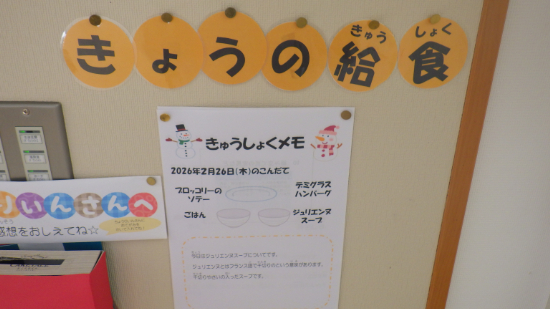 きょうの給食
きゅう しょく
きゅうしょくメモ
2026年2月26日(木)のこんだて
ブロッコリーの
ソテー
デミグラス
ハンバーグ
ごはん
ジュリエンヌ
スープ
いんさんへ
感想をおしえてね☆
今日はジュリエンヌスープについてです。
ジュリエンヌとはフランス語で千切りという意味があります。